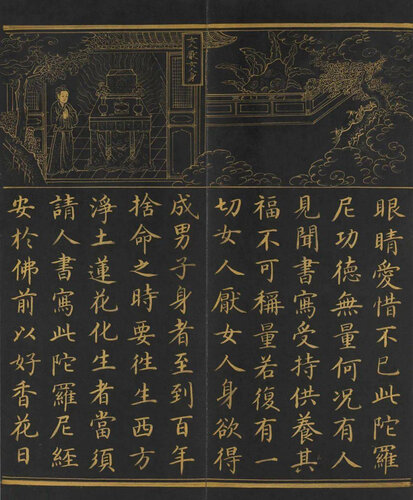 厭女身
眼睛愛惜不已此陀羅
尼功德無量何況有人
見聞書寫受持供養其
福不可稱量若復有一
切女人厭女人身欲得
成男子身者至到百年
捨命之時要往生西方
淨土蓮花化生者當須
請人書寫此陀羅尼經
安於佛前以好香花日